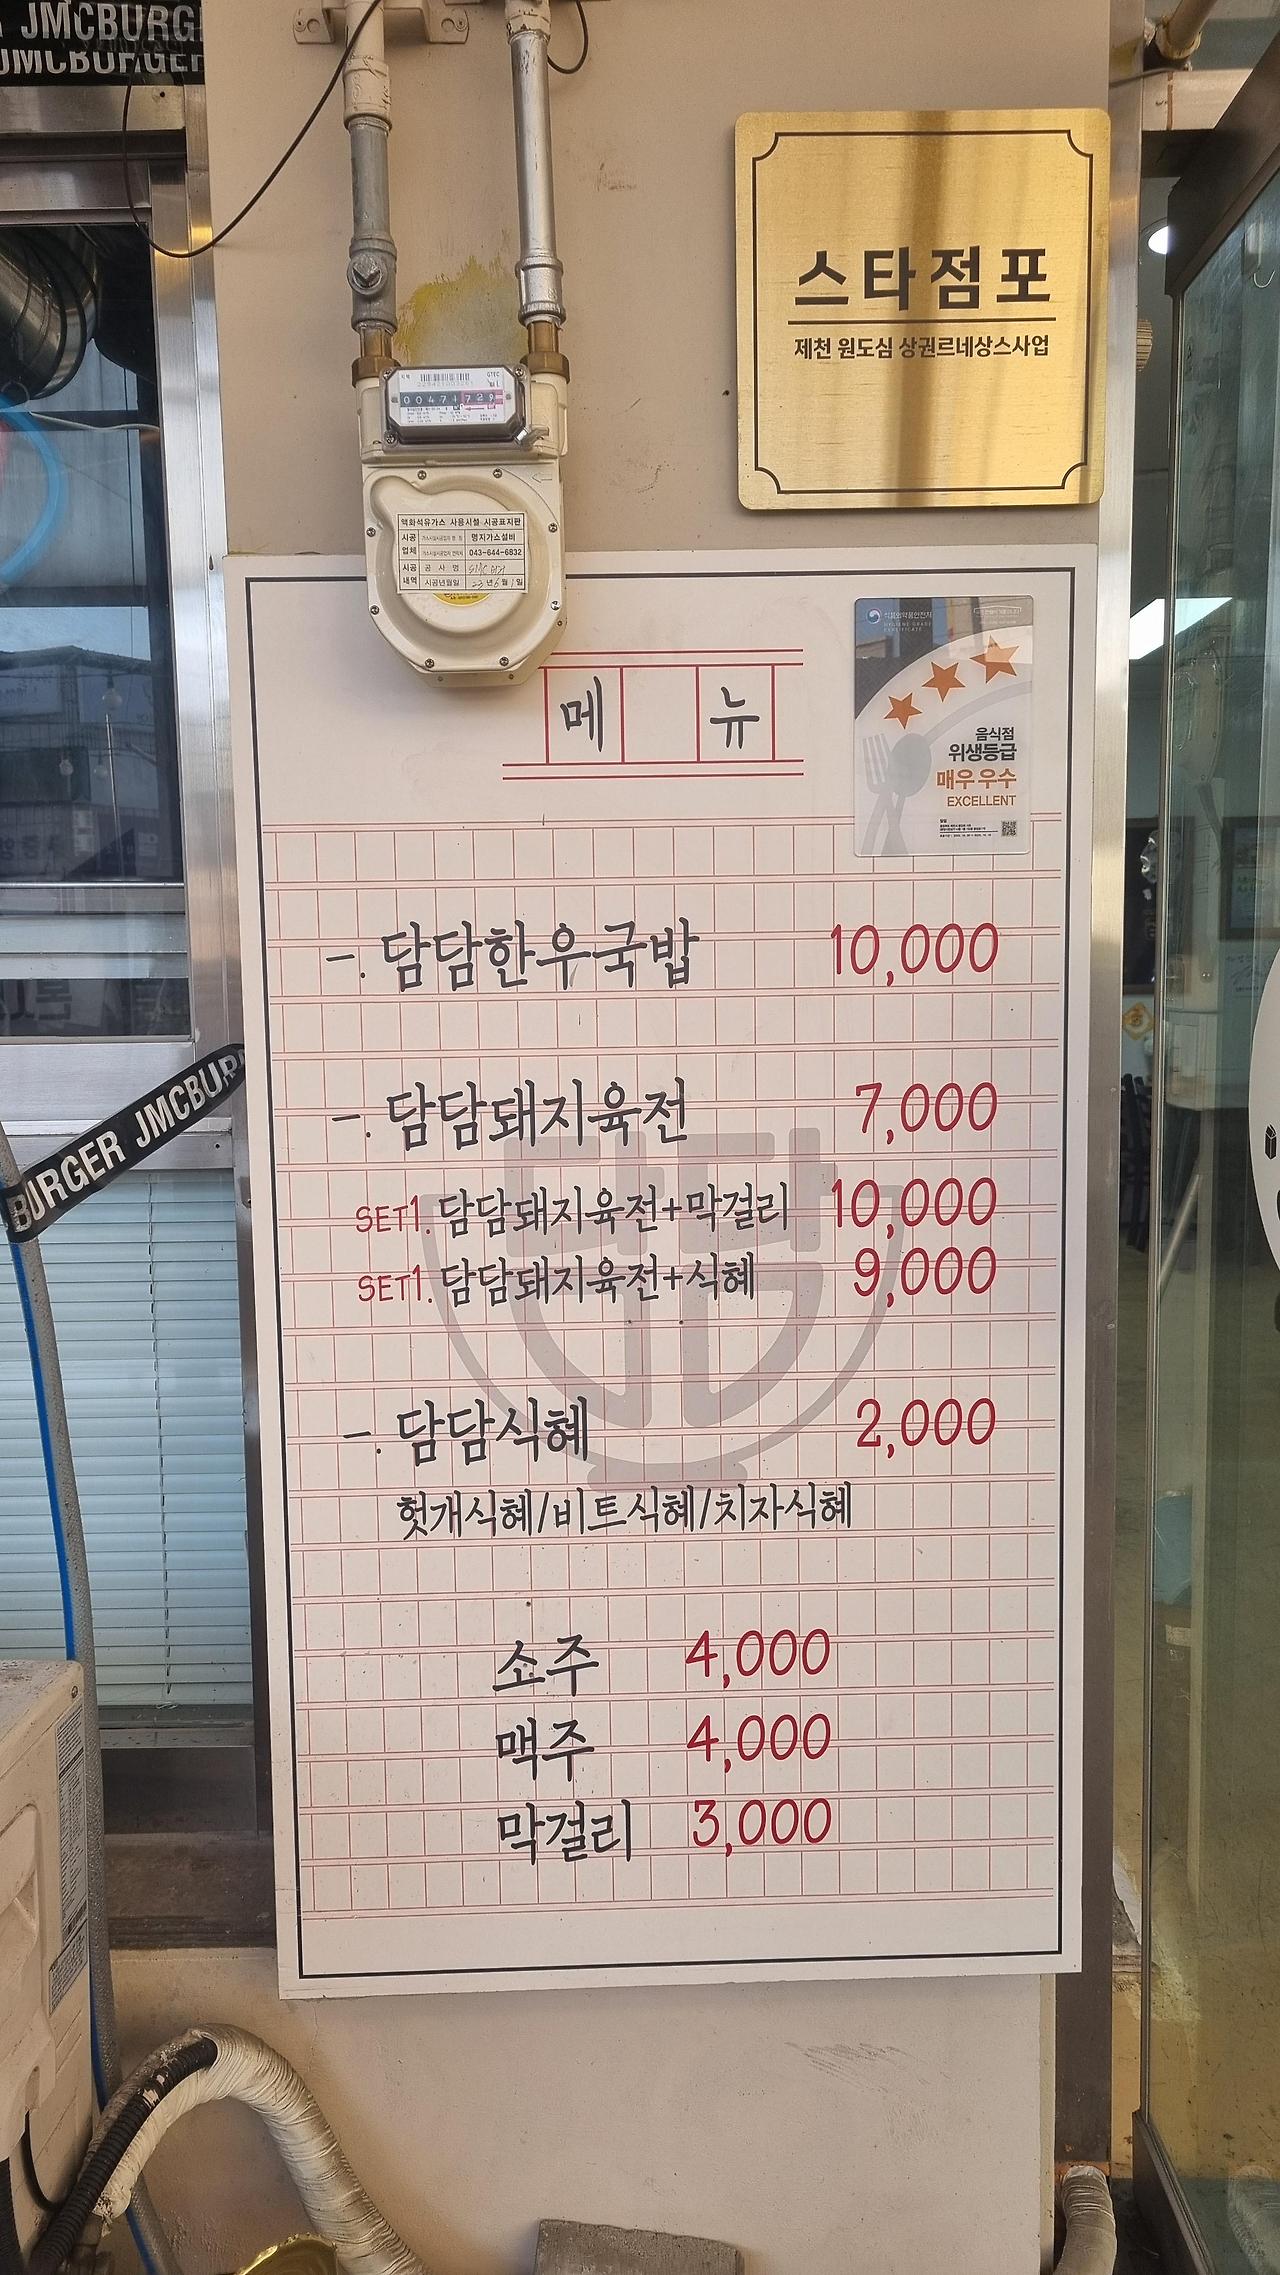 JMCBURG
JMCBURGER
스타점포
제천 원도심 상권르네상스사업
GTEC
00471729
액화석유가스 사용시설 시공표지판
시공업체
명지가스설비
043-644-6832
시공내역
공 사 명
시공년월일
식품의약품안전처
HYGIENE GRADE
CERTIFICATE
음식점
위생등급
매우 우수
EXCELLENT
메 뉴
一. 담담한우국밥 10,000
一. 담담돼지육전 7,000
SET1. 담담돼지육전+막걸리 10,000
SET1. 담담돼지육전+식혜 9,000
一. 담담식혜 2,000
헛개식혜/비트식혜/치자식혜
소주 4,000
맥주 4,000
막걸리 3,000
담담
BURGER JMCBUR